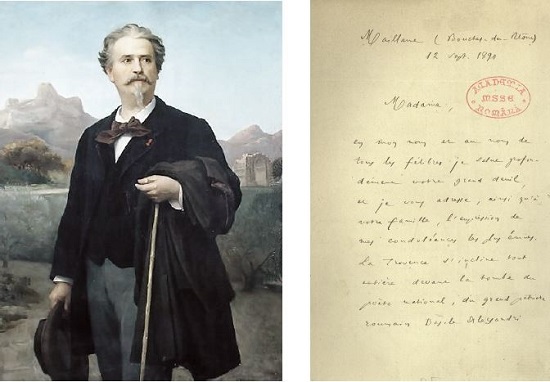 Maillane (Bouches-du-Rhône)
12 sept. 1890
ACADEMIA
MSSE
ROMÂNĂ
Madame,
en mon nom et au nom de
tous les félibres je salue profon-
dément votre grand deuil,
et je vous adresse, ainsi qu'à
votre famille, l'expression de
mes condoléances les plus émues.
La Provence s'incline tout
entière devant la tombe du
poète national, du grand patriote
roumain Vasile Alexandri